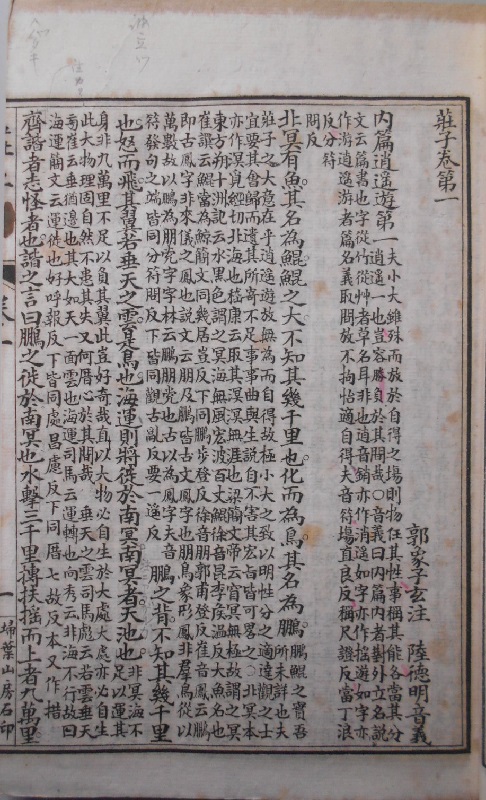 莊子卷第一
郭象子玄注 陸德明音義
內篇逍遙遊第一
夫小大雖殊而放於自得之場則物任其性事稱其能各當其分
逍遙一也豈容勝負於其間哉○音義曰內篇內者對外立名說
文云篇書也字從竹從艸者草名耳非也逍音銷亦作消遙如字亦作搖遊如字亦
作游逍遙游者篇名義取閒放不拘怡適自得夫音符場直良反稱尺證反當丁浪
反分符
問反
北冥有魚其名為鯤鯤之大不知其幾千里也化而為鳥其名為鵬
鵬鯤之實吾
所未詳也夫
莊子之大意在乎逍遙遊放無為而自得故極小大之致以明性分之適達觀之士
宜要其會歸而遺其所寄不足事事曲與生說自不害其宏旨皆可畧之○北冥本
亦作溟覓經切北海也嵇康云取其溟漠無涯也梁簡文帝云窅冥無極故謂之冥
東方朔十洲記云水黑色謂之冥海無風宏波百丈鯤徐音昆李侯溫反大魚名也
崔譔云鯤當為鯨簡文同幾居豈反下同鵬步登反徐音朋郭甫登反崔音鳳云鵬
即古鳳字非來儀之鳳也說文云朋及鵬皆古文鳳字也朋鳥象形鳳非羣鳥從以
萬數故以鵬為朋黨字字林云鵬朋黨也古以為鳳字夫音
符發句之端皆同分符問反下皆同觀古亂反要一遙反
鵬之背不知其幾千里
也怒而飛其翼若垂天之雲是鳥也海運則將徙於南冥南冥者天池也
非冥海不
足以運其
身非九萬里不足以負其翼此豈好奇哉直以大物必自生於大處大處亦必自生
此大物理固自然不患其失又何厝心於其間哉 垂天之雲司馬彪云若雲垂天
旁崔云垂猶邊也其大如天一面雲也海運司馬云運轉也向秀云非海不行故曰
海運簡文云運徙也好呼報反下皆同處昌慮反下同厝七故反本又作措
齊諧者志怪者也諧之言曰鵬之徙於南冥也水擊三千里摶扶搖而上者九萬里
一 掃葉山房石印